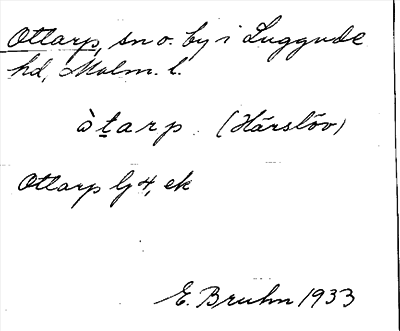 Ottarp, sn o. by i Luggude
hd, Malm. l.
òtarp. (Härslöv)
Ottarp Lj 4, ek
E. Bruhn 1933